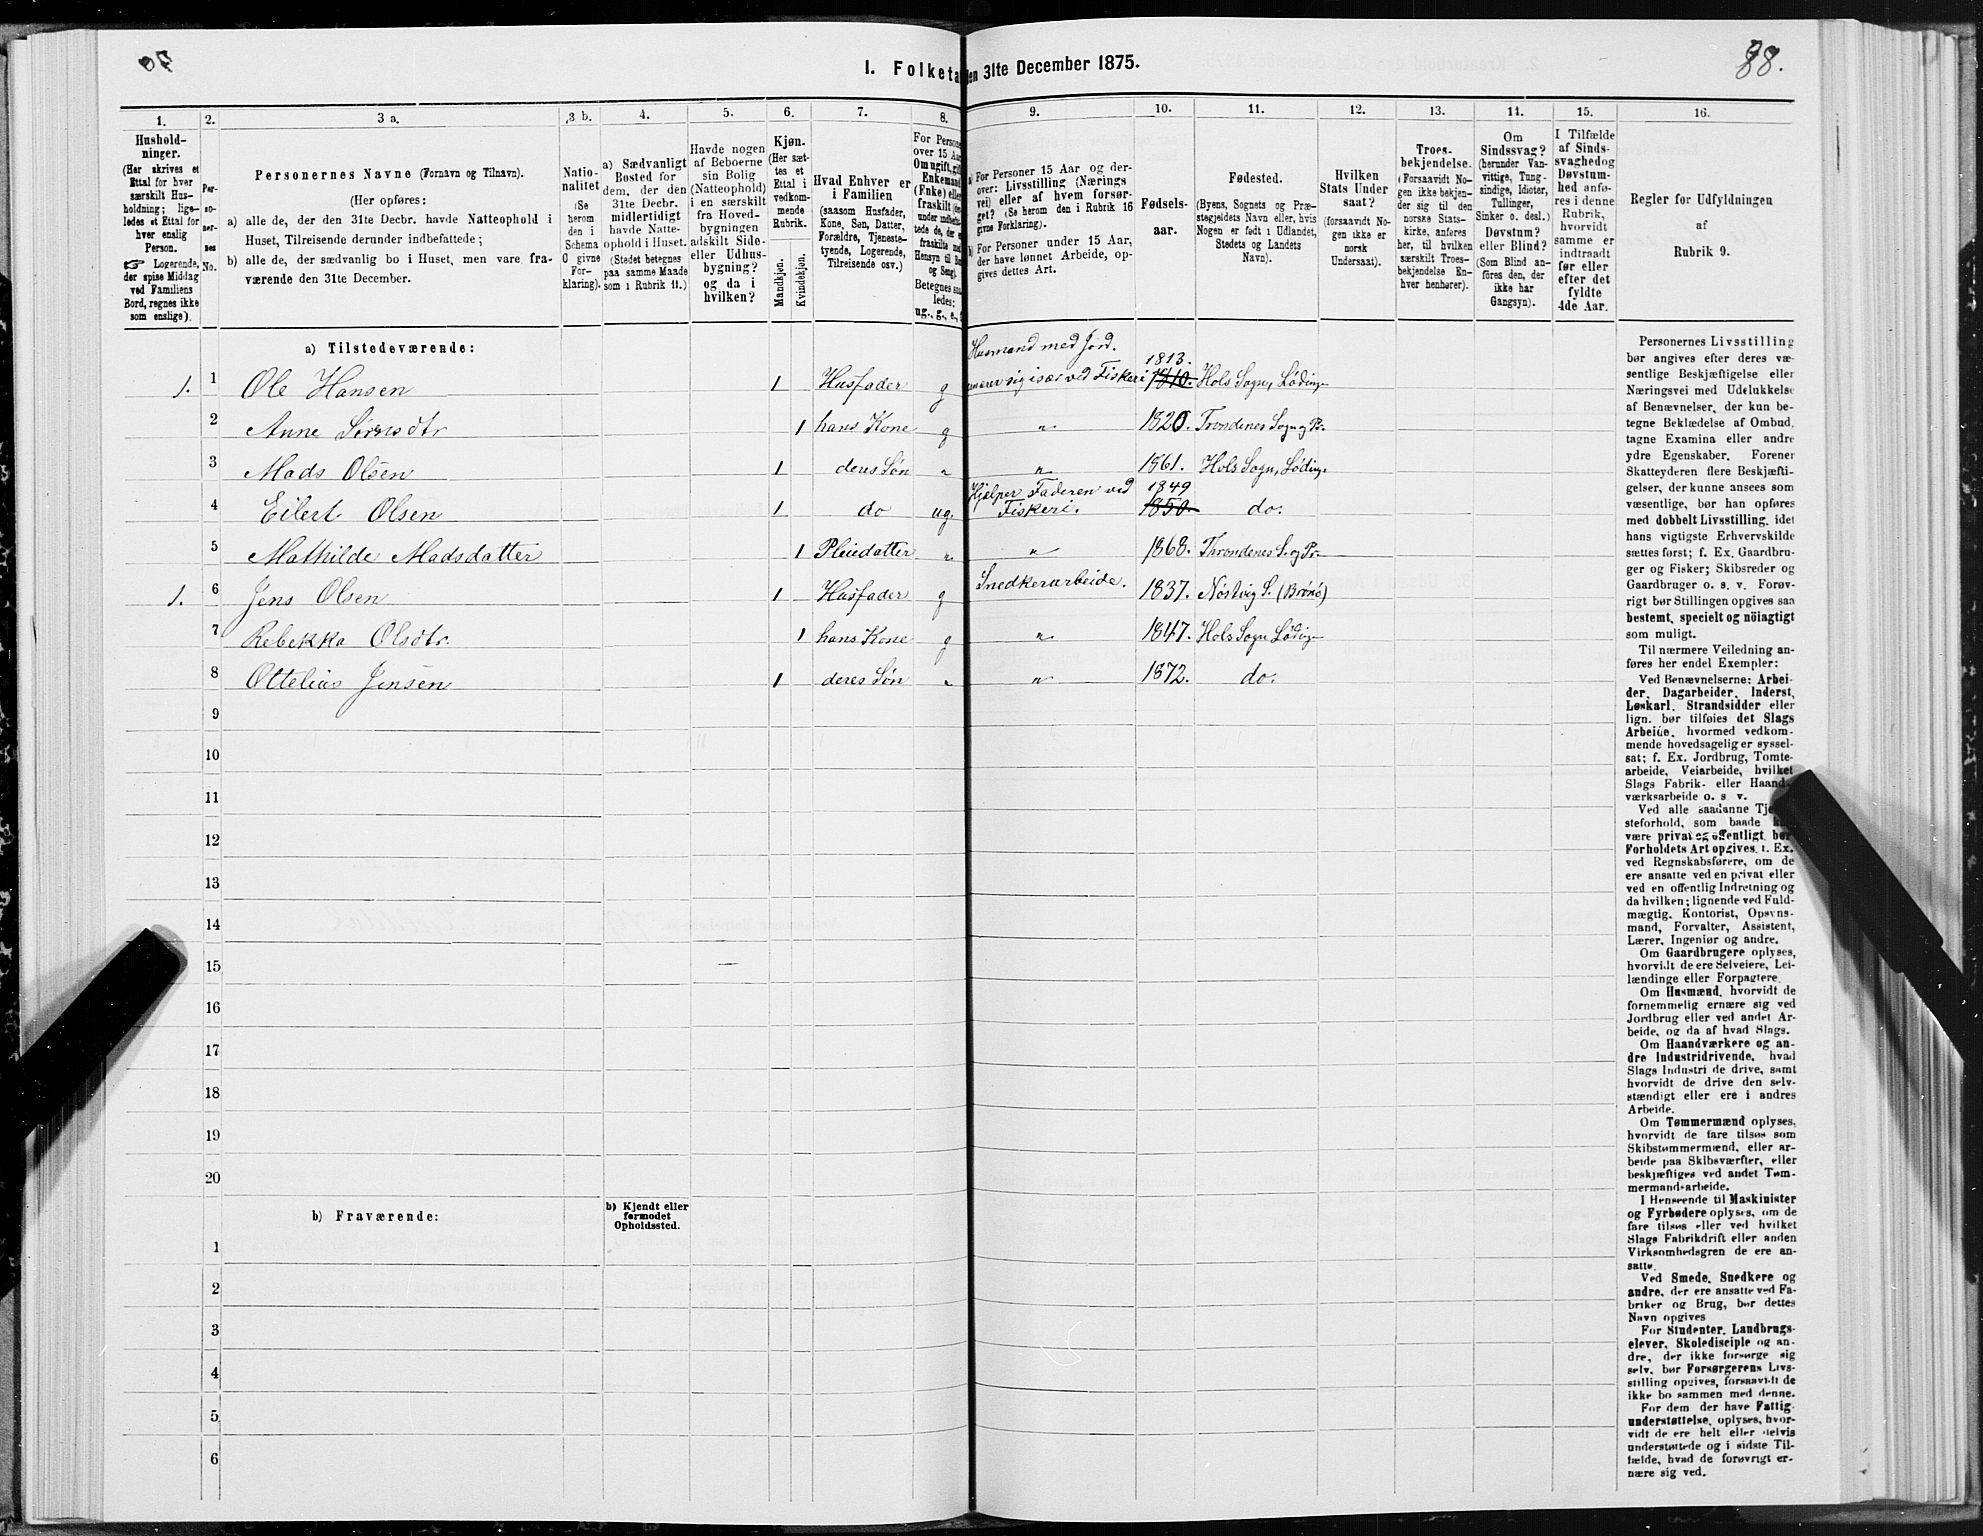 88.
I. Folketa
en 31te December 1875.
1.
2.
3 a.
3 b.
4.
5.
6.
7.
8.
9.
10.
11.
12.
13.
14.
15.
16.
Hushold-
ninger.
(Her skrives et
Ettal for hver
særskilt Hus-
holdning; lige-
ledes et Ettal for
hver enslig
Person.
☞ Logerende,
der spise Middag
ved Familiens
Bord, regnes ikke
som enslige).
Per-
so-
ner-
nes
No.
Personernes Navne (Fornavn og Tilnavn).
(Her opføres:
a) alle de, der den 31te Decbr. havde Natteophold i
Huset, Tilreisende derunder indbefattede;
b) alle de, der sædvanlig bo i Huset, men vare fra-
værende den 31te December.
Natio-
nalitet
(Se
herom
den i
Schema
O givne
For-
klaring).
a) Sædvanligt
Bosted for
dem, der den
31te Decbr.
midlertidigt
havde Natte-
ophold i Huset.
(Stedet betegnes
paa samme Maade
som i Rubrik 11.)
Havde nogen
af Beboerne
sin Bolig
(Natteophold)
i en særskilt
fra Hoved-
bygningen
adskilt Side-
eller Udhus-
bygning?
og da i
hvilken?
Kjøn.
(Her sæt-
tes et
Ettal i
vedkom-
mende
Rubrik.
Mandkjøn.
Kvindekjøn.
Hvad Enhver er
i Familien
(saasom Husfader,
Kone, Søn, Datter,
Forældre, Tjeneste-
tyende, Logerende,
Tilreisende osv.)
For Persone
over 15 Aa
Om ugift, gift
Enkemand
(Enke) eller
fraskilt (de
under indbefat-
tede de, der e
fraskilte med
Hensyn til Bo
og Seng).
Betegnes saa
ledes:
ug., g., e.,
a) For Personer 15 Aar og der-
over: Livsstilling (Nærings
vei) eller af hvem forsør-
get? (Se herom den i Rubrik 16
givne Forklaring).
b) For Personer under 15 Aar,
der have lønnet Arbeide, op-
gives dettes Art.
Fødsels-
aar.
Fødested.
(Byens, Sognets og Præ-
stegjeldets Navn eller, hvis
Nogen er født i Udlandet,
Stedets og Landets
Navn).
Hvilken
Stats Under
saat?
(forsaavidt No-
gen ikke er
norsk
Undersaat).
Troes-
bekjendelse.
(Forsaavidt No-
gen ikke bekjen-
der sig til den
norske Stats-
kirke, anføres
her, til hvilken
særskilt Troes-
bekjendelse En-
hver henhører).
Om
Sindssvag?
(herunder Van-
vittige, Tung-
sindige, Idioter,
Tullinger,
Sinker o. desl.)
Døvstum?
eller Blind?
(Som Blind an-
føres den, der
ikke har
Gangsyn).
I Tilfælde
af Sinds-
svaghedog
Døvstum-
hed anfø-
res i denne
Rubrik,
hvorvidt
samme er
indtraadt
før eller
efter det
fyldte
4de Aar.
Regler for Udfyldningen
af
Rubrik 9.
a) Tilstedeværende:
Husmand med Jord.
1813.
1. 1 Ole Hansen 1 Husfader g sig især ved Fiskeri 1810. Hols Sogn, Lødinge
2 Anne 1 hans Kone g " 1820. Trondenes Sogn og Pr.
3 Mads Olsen 1 deres Søn " " 1861. Hols Sogn, Lødinge
Hjælper Faderen ved 1849
4 Eilert Olsen 1 do ug. Fiskeri. 1850. do.
5 Mathilde Madsdatter 1 Pleiedatter " " 1868. Throndenes S. og Pr.
1. 6 Jens Olsen 1 Husfader g Snedkerarbeide. 1837. Nøstvig S. (Brønø)
7 Rebekka Olsdtr. 1 hans Kone g " 1847. Hols Sogn Lødinge
8 Ottelias Jensen 1 deres Søn " " 1872. do.
9
10
11
12
13
14
15
16
17
18
19
20
b) Fraværende:
b) Kjendt eller
formodet
Opholdssted.
1
2
3
4
5
6
Personernes Livsstilling
bør angives efter deres væ-
sentlige Beskjæftigelse eller
Næringsvei med Udelukkelse
af Benævnelser, der kun be-
tegne Beklædelse af Ombud,
tagne Examina eller andre
ydre Egenskaber. Forener
Skatteyderen flere Beskjæfti-
gelser, der kunne ansees som
væsentlige, bør han opføres
med dobbelt Livsstilling, idet
hans vigtigste Erhvervskilde
sættes først; f. Ex. Gaardbru-
ger og Fisker; Skibsreder og
Gaardbruger o. s. v. Forøv-
rigt bør Stillingen opgives saa
bestemt, specielt og nøiagtigt
som muligt.
Til nærmere Veiledning an-
føres her endel Exempler:
Ved Benævnelserne: Arbei-
der, Dagarbeider, Inderst,
Løskarl, Strandsidder eller
lign. bør tilføies det Slags
Arbeide, hvormed vedkom-
mende hovedsagelig er syssel-
sat; f. Ex. Jordbrug, Tomte-
arbeide, Veiarbeide, hvilket
Slags Fabrik- eller Haand-
værksarbeide o. s. v.
Ved alle saadanne Tje
steforhold, som baade
være privat og offentligt, bør
Forholdets Art opgives, f. Ex.
ved Regnskabsførere, om de
ere ansatte ved en privat eller
ved en offentlig Indretning og
da hvilken; lignende ved Fuld-
mægtig, Kontorist, Opsyns-
mand, Forvalter, Assistent,
Lærer, Ingeniør og andre.
Om Gaardbrugere oplyses,
hvorvidt de ere Selveiere, Lei-
lændinge eller Forpagtere.
Om Husmænd, hvorvidt de
fornemmelig ernære sig ved
Jordbrug eller ved andet Ar-
beide, og da af hvad Slags.
Om Haandværkere og an-
dre Industridrivende, hvad
Slags Industri de drive, samt
hvorvidt de drive den selv-
stændigt eller ere i andres
Arbeide.
Om Tømmermænd oplyses,
hvorvidt de fare tilsøs som
Skibstømmermænd, eller ar-
beide paa Skibsværfter, eller
beskjæftiges ved andet Tøm-
mermandsarbeide.
I Henseende til Maskinister
og Fyrbødere oplyses, om de
fare tilsøs eller ved hvilket
Slags Fabrikdrift eller anden
Virksomhedsgren de ere an-
satte.
Ved Smede, Snedkere og
andre, der ere ansatte ved Fa-
briker og Brug, bør dettes
Navn opgives
For Studenter, Landbrugs-
elever, Skoledisciple og an-
dre, der ikke forsørge sig
selv, bør Forsørgerens Livs-
stilling opgives, forsaavidt de
ikke bo sammen med denne.
For dem der have Fattig-
understøttelse, oplyses, hvor-
vidt de ere helt eller delvis
understøttede og i sidste Til-
fælde, hvad de forøvrigt er-
nære sig ved.